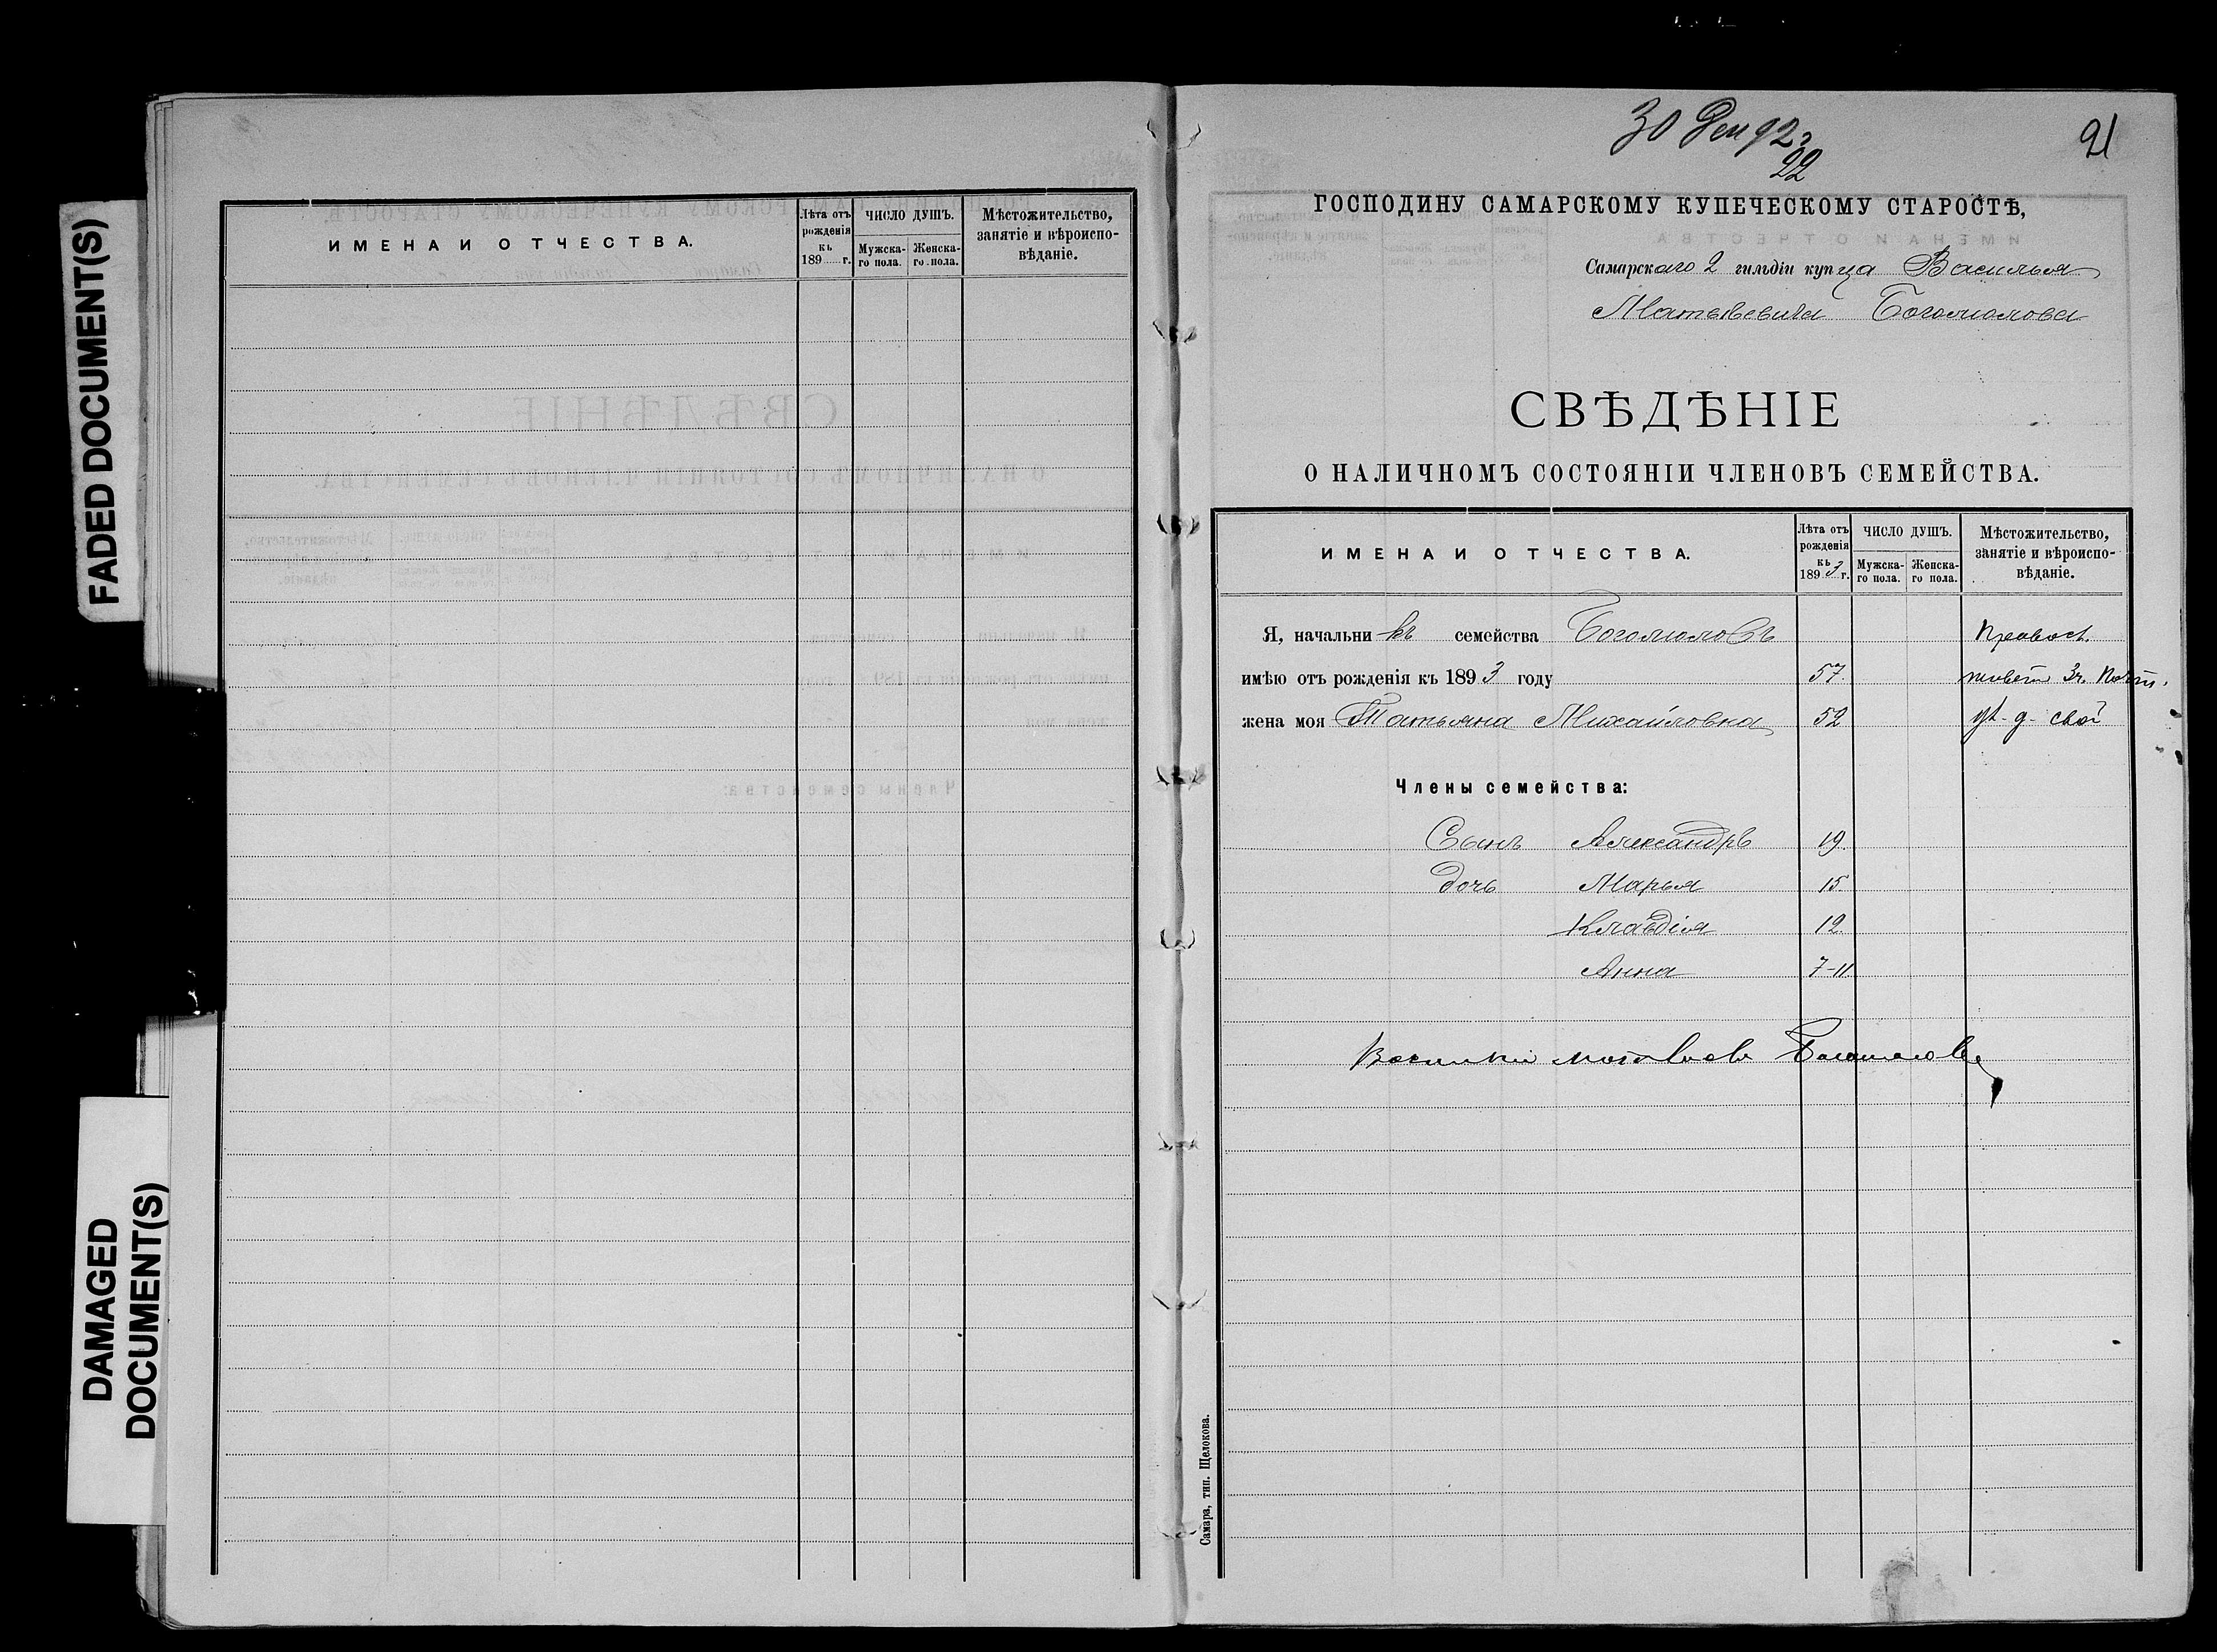 FADED DOCUMENT(S)
DAMAGED
DOCUMENT(S)
ИМЕНА И ОТЧЕСТВА.
Лѣта отъ рожденія къ 189 г.
ЧИСЛО ДУШЪ.
Мужска-го пола.
Женска-го пола.
Мѣстожительство,
занятіе и вѣроиспо-
вѣданіе.
30 Дек 92 г
22
21
ГОСПОДИНУ САМАРСКОМУ КУПЕЧЕСКОМУ СТАРОСТѢ,
Самарскаго 2 гильдіи купца Василья
Матвѣевича Богомолова
СВѢДѢНІЕ
О НАЛИЧНОМЪ СОСТОЯНІИ ЧЛЕНОВЪ СЕМЕЙСТВА.
ИМЕНА И ОТЧЕСТВА.
Лѣта отъ рожденія къ 1893 г.
ЧИСЛО ДУШЪ.
Мужска-го пола.
Женска-го пола.
Мѣстожительство,
занятіе и вѣроиспо-
вѣданіе.
Я, начальникъ семейства Богомоловъ Правосл.
имѣю отъ рожденія къ 1893 году 57. живетъ 3 ч.
жена моя Татьяна Михайловна 52 д. свой
Члены семейства:
Сынъ Александръ 19.
дочь Марья 15.
Клавдія 12.
Анна 7-11.
Василий Матвѣевъ Богомоловъ
Самара, тип. Щелокова.